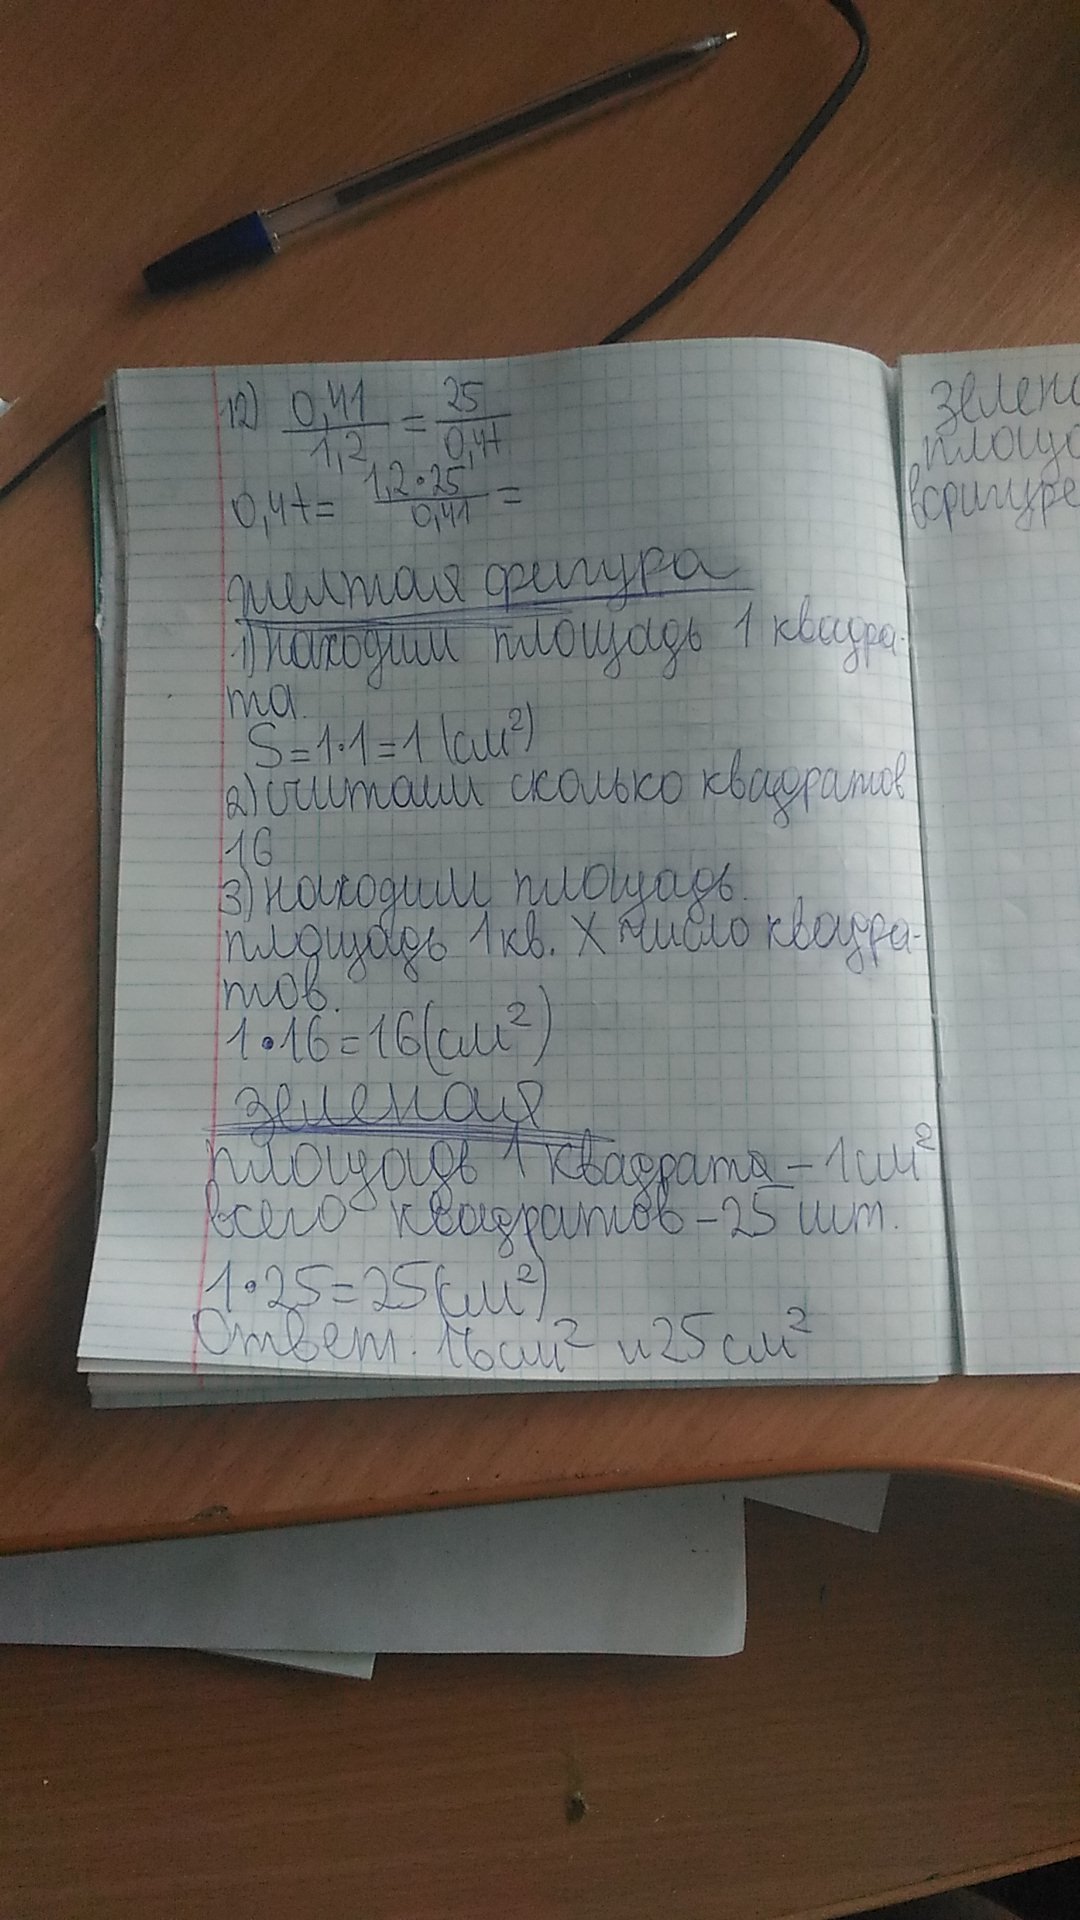 12) 0,41/1,2 = 25/0,4t
0,4t = 1,2·25/0,41 =
желтая фигура
1) находим площадь 1 квадра-
та.
S=1·1=1 (см²)
2) считаем сколько квадратов
16
3) находим площадь.
площадь 1 кв. X число квадра-
тов.
1·16=16(см²)
зеленая
площадь 1 квадрата – 1см²
всего квадратов – 25 шт.
1·25=25(см²)
Ответ. 16см² и 25см²
зелено
площа
вфигуре